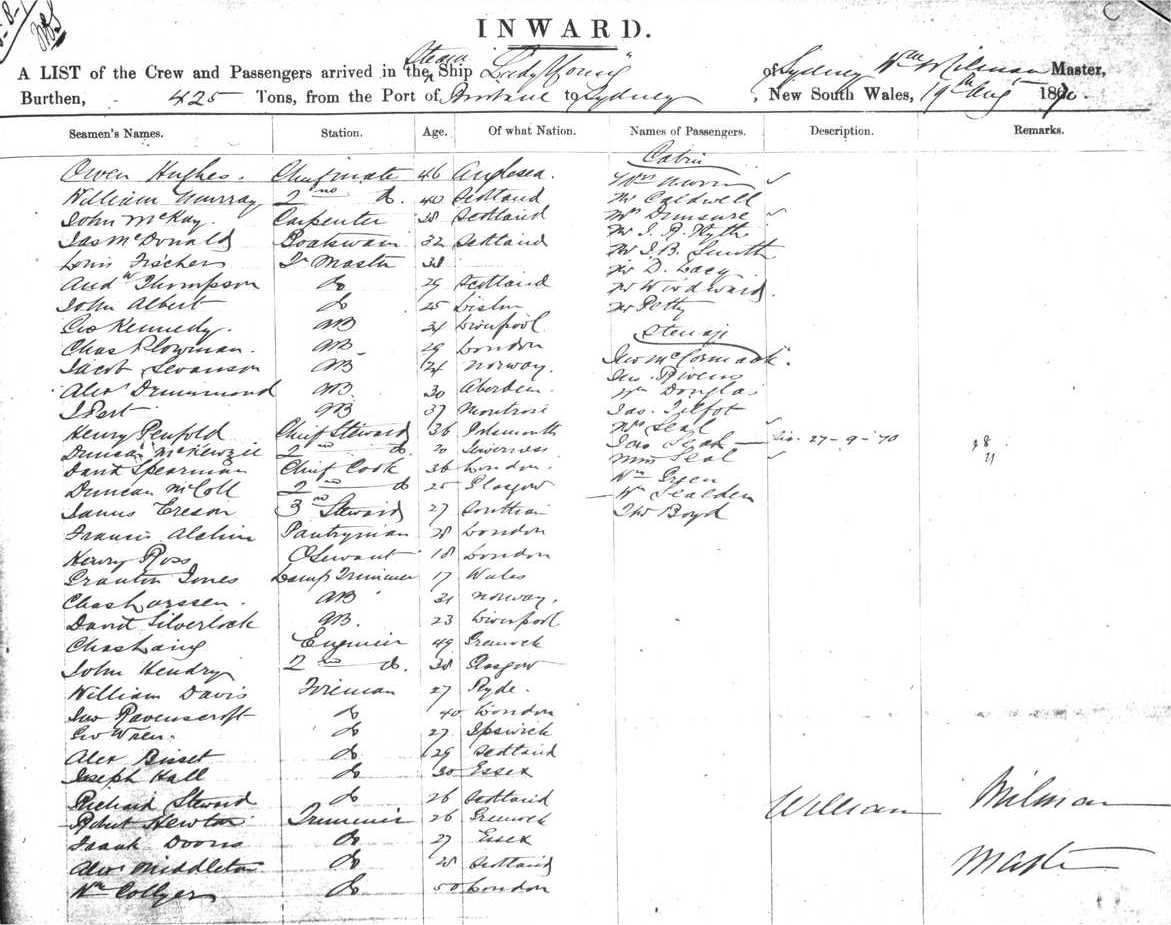 INWARD.
A LIST of the Crew and Passengers arrived in the Steam Ship Lady Young of Sydney Wm Milman Master,
Burthen, 425 Tons, from the Port of Brisbane to Sydney, New South Wales, 19th Aug 1870.
Seamen's Names. Station. Age. Of what Nation. Names of Passengers. Description. Remarks.
Cabin
Owen Hughes. Chief mate 46 Anglesea.
William Murray 2nd do. 40 Scotland Mr Caldwell
John McKay. Carpenter 38 Scotland
Jas McDonald Boatswain 32 Scotland
Louis Fischer Mr J. B. Smith
Master 38 Mr D. Lacy
Andw Thompson do 29 Scotland Mr Woodward
John Albert do 25 Mr Petty
Geo Kennedy. AB 31 Liverpool Steerage
Chas Plowman. AB 29 London
Jacob Swanson AB 24 Norway. Jno McCormack
Alexr Drummond AB. 30 Aberdeen Douglas
J Pert AB 37 Montrose Jas.
Henry Penfold Chief Steward 36 Portsmouth Seal
Duncan McKenzie 2nd do. 20 Inverness 27-9-70
David Spearman Chief Cook 36 London. Seal
Duncan McColl 2nd do 25 Glasgow Wm Green
James 3rd Steward 27 Wm
Francis Pantryman 28 London Boyd
Henry Ross 18 London
Jones Lamp Trimmer 17 Wales
Chas Larssen. AB 31 Norway.
David Silverlock AB. 23 Liverpool
Chas Laing Engineer 49 Greenock
John Hendry 2nd do. 38 Glasgow
William Davis Fireman 27 Ryde.
Jno Ravenscroft do 40 London
Geo Wren. do 27 Ipswich
Alex Bisset do 29 Scotland
Joseph Hall do 30 Essex
Richard Steward do 26 Scotland William Milman
Robert Newton Trimmer 26 Greenock
Isaak do 27 Essex
Alexr Middleton do 28 Scotland Master
Wm Collyer do 50 London